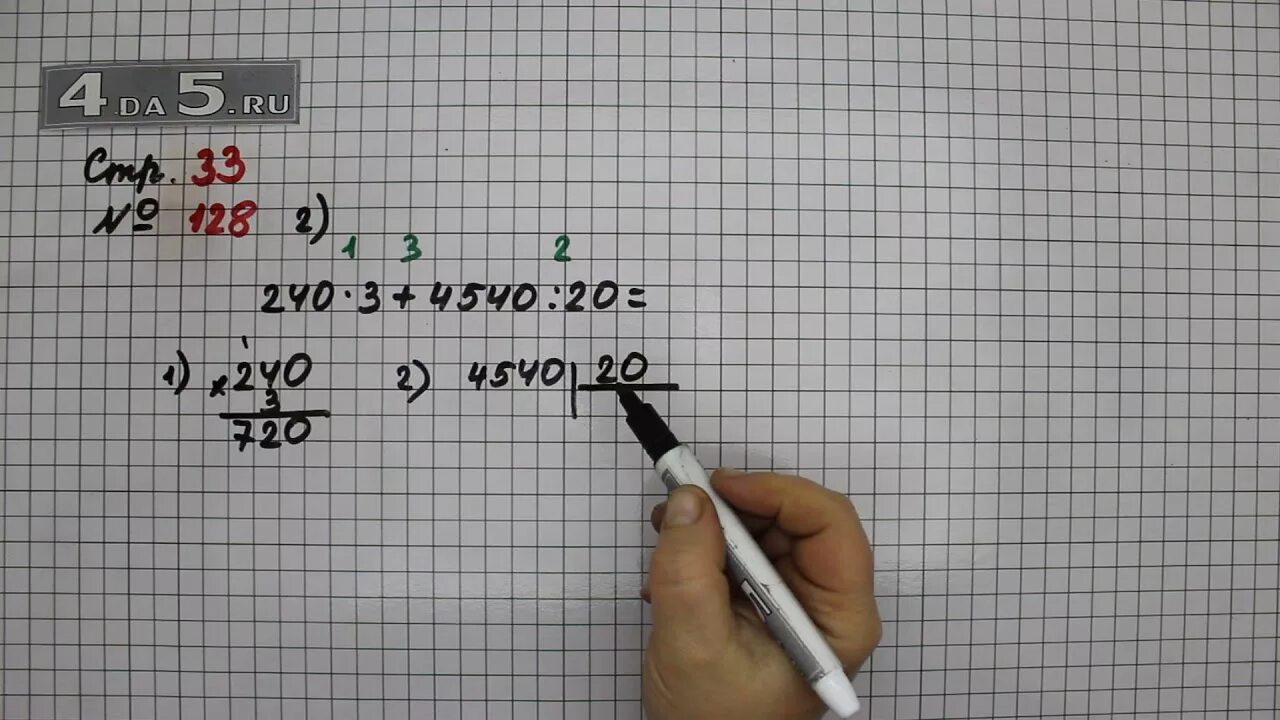 4DA5.RU
Стр. 33
№ 128 2)
1 3 2
240·3+4540:20=
1) 1
×240
3
720
2) 4540|20